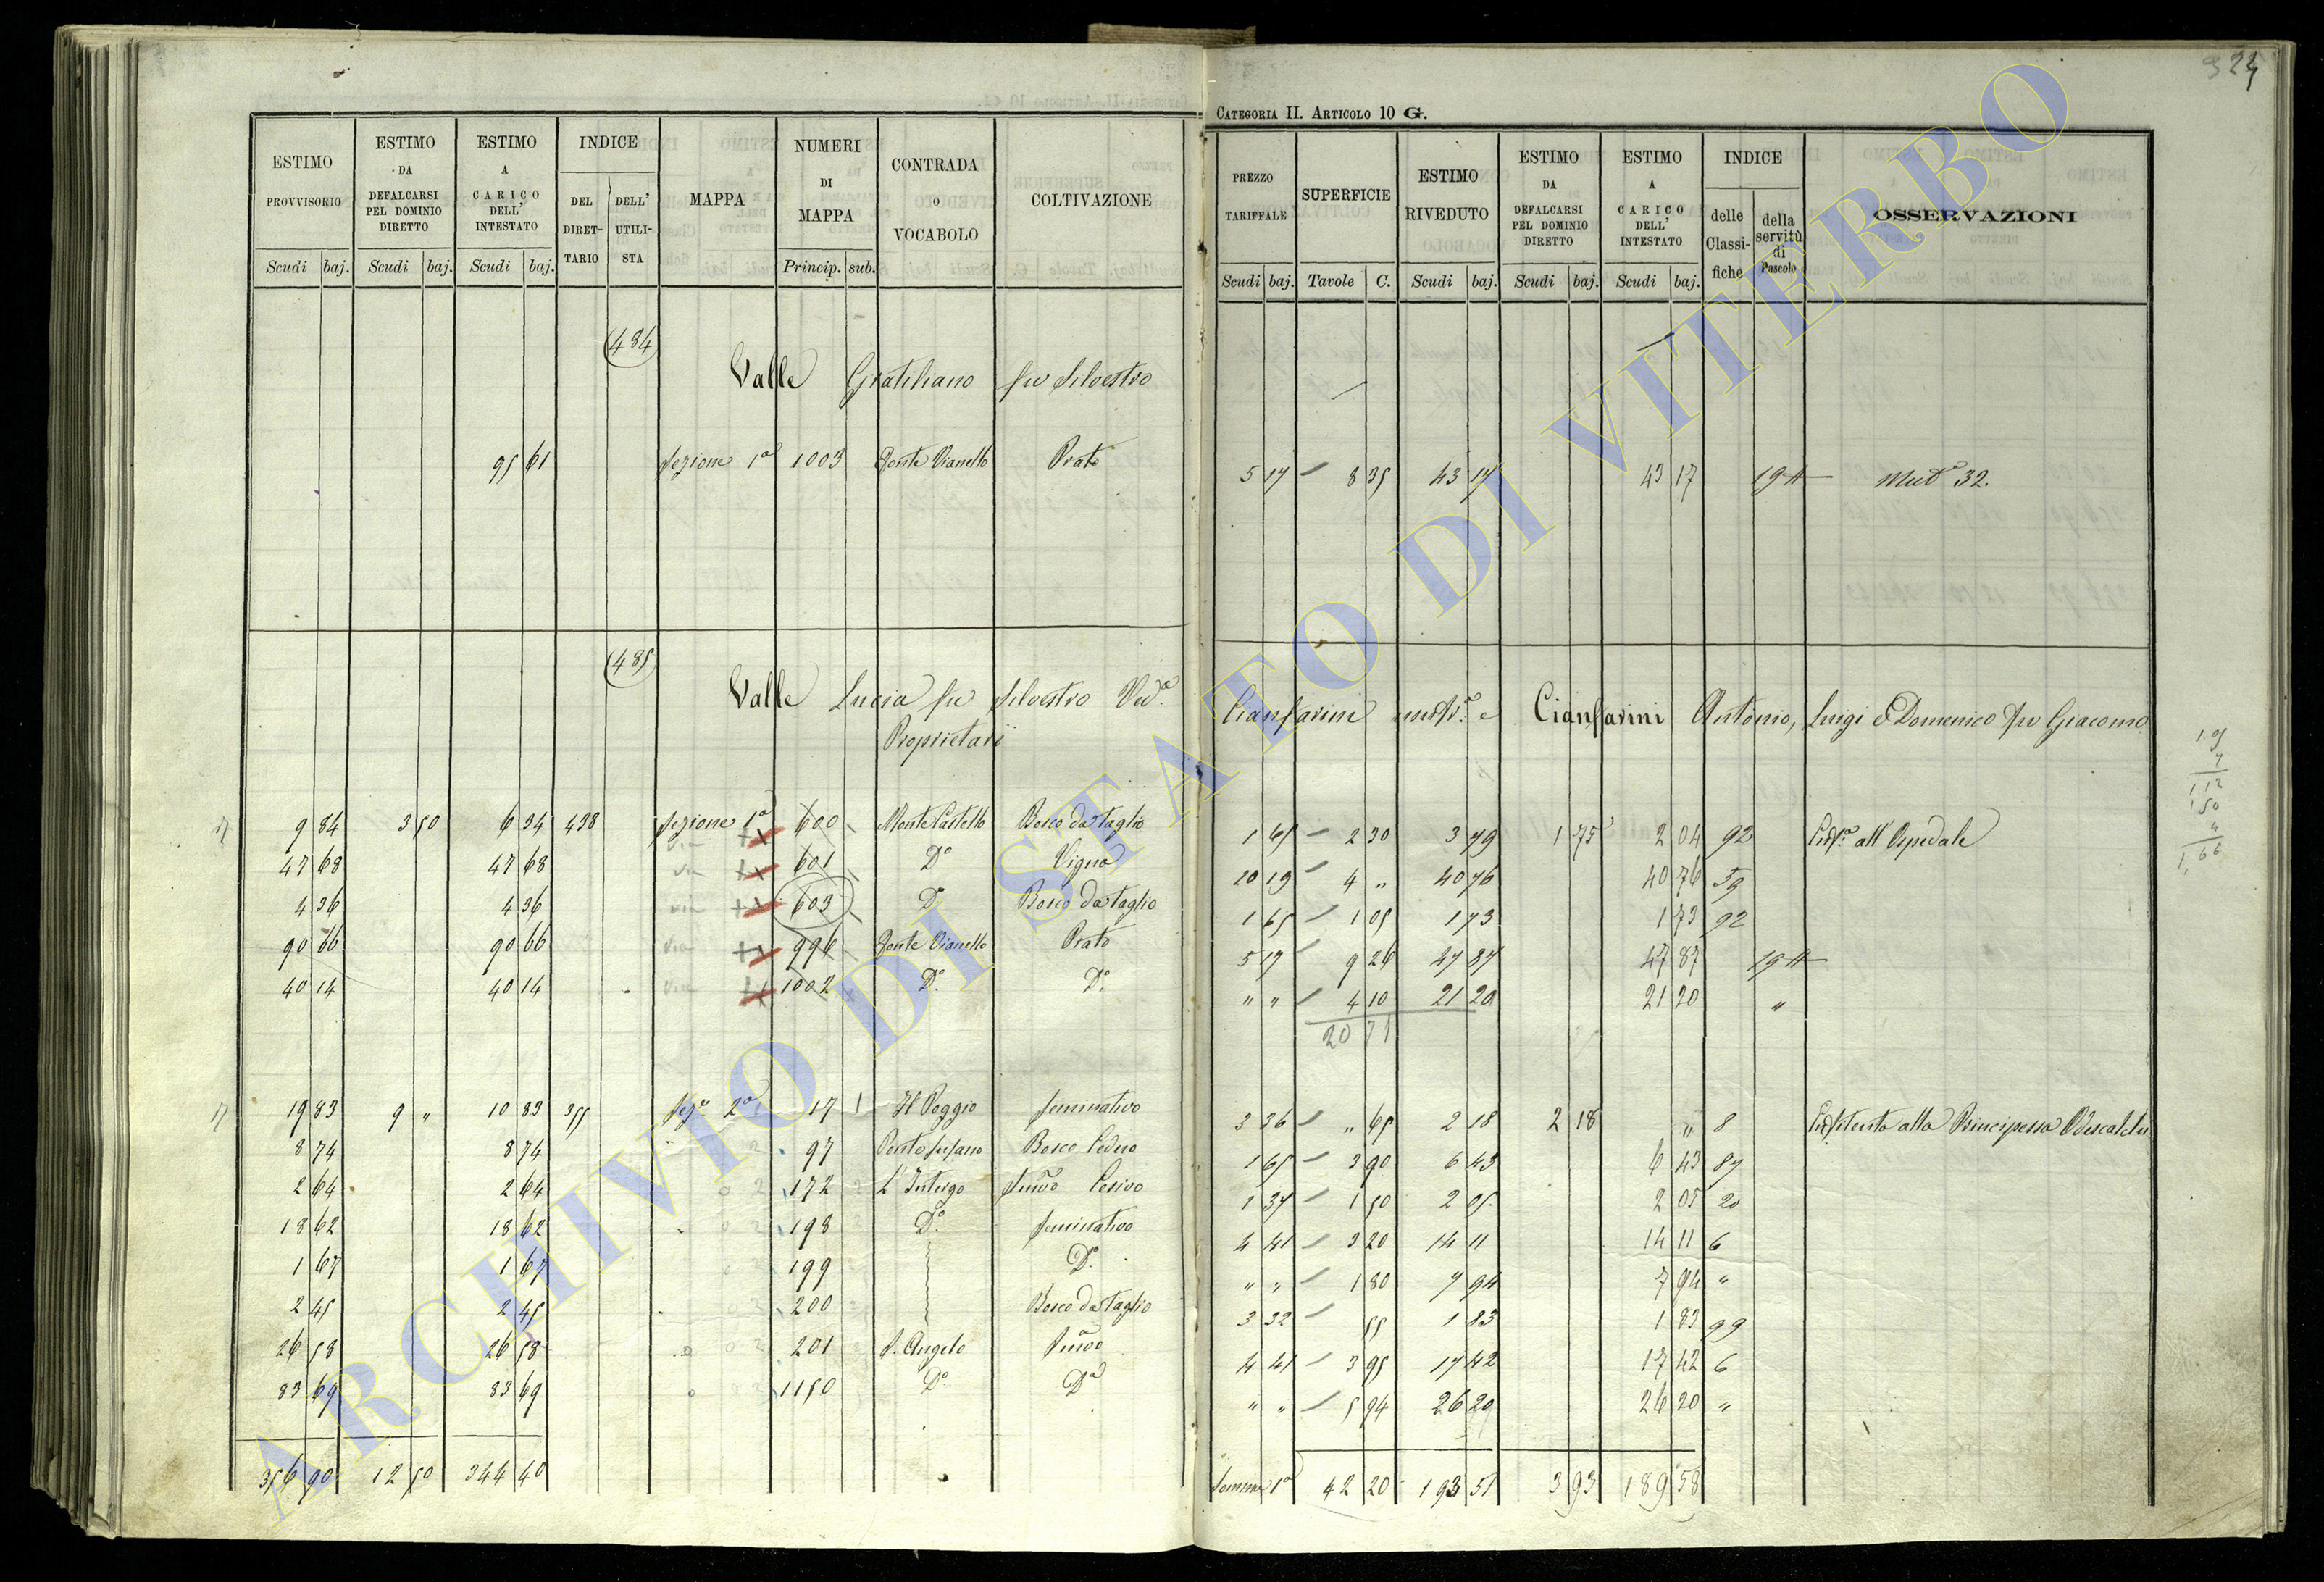 324
CATEGORIA II. ARTICOLO 10 G.
ESTIMO PROVVISORIO Scudi baj.
ESTIMO DA DEFALCARSI PEL DOMINIO DIRETTO Scudi baj.
ESTIMO A CARICO DELL' INTESTATO Scudi baj.
INDICE DEL DIRETTARIO DELL' UTILISTA
MAPPA
NUMERI DI MAPPA Princip. sub.
CONTRADA O VOCABOLO
COLTIVAZIONE
PREZZO TARIFFALE Scudi baj.
SUPERFICIE Tavole C.
ESTIMO RIVEDUTO Scudi baj.
ESTIMO DA DEFALCARSI PEL DOMINIO DIRETTO Scudi baj.
ESTIMO A CARICO DELL' INTESTATO Scudi baj.
INDICE delle Classifiche della servitù di Pascolo
OSSERVAZIONI
484
Valle Gratiliano fu Silvestro
95 61 Sezione 1a 1003 Fonte Vianello Prato 5 17 8 35 43 17 43 17 19 4 32.
485
Valle Lucia fu Silvestro Ved.a Cianfarini e Cianfarini Antonio, Luigi e Domenico fu Giacomo
Proprietari
9 84 3 50 6 34 438 Sezione 1a 600 Monte Castello Bosco da taglio 1 65 2 30 3 79 1 75 2 04 92 all' Ospedale
47 68 47 68 601 Do Vigna 20 19 4 " 40 76 40 76 59
4 36 4 36 603 Do Bosco da taglio 1 65 1 05 1 73 1 73 92
90 66 90 66 996 Fonte Vianello Prato 5 17 9 26 47 87 47 87 19 4
40 14 40 14 1002 Do. Do. " " 4 10 21 20 21 20 "
20 71
19 83 9 " 10 83 355 Sez.e 2a 17 1 Il Poggio Seminativo 3 36 " 65 2 18 2 18 " 8 alla Principessa Odescalchi
8 74 8 74 97 Bosco Ceduo 1 65 3 90 6 43 6 43 87
2 64 2 64 172 L'Intergo 1 37 1 50 2 05 2 05 20
18 62 18 62 198 Do. Seminativo 4 41 3 20 14 11 14 11 6
1 67 1 67 199 Do. " " 1 80 7 94 7 94 "
2 45 2 45 200 Bosco da taglio 3 32 55 1 83 1 83 99
26 58 26 58 201 S. Angelo 4 41 3 95 17 42 17 42 6
83 69 83 69 1150 Do Do " " 5 94 26 20 26 20 "
356 90 12 50 344 40 Somma 1a 42 20 193 51 3 93 189 58
ARCHIVIO DI STATO DI VITERBO